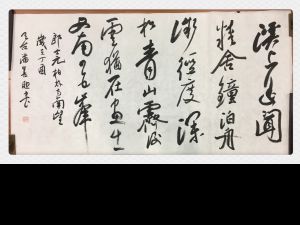 溪上遙聞
精舍鐘泊舟
微徑度深
松青山霽後
雲猶在畫出
西南四五峯
郎士元柏林寺南望